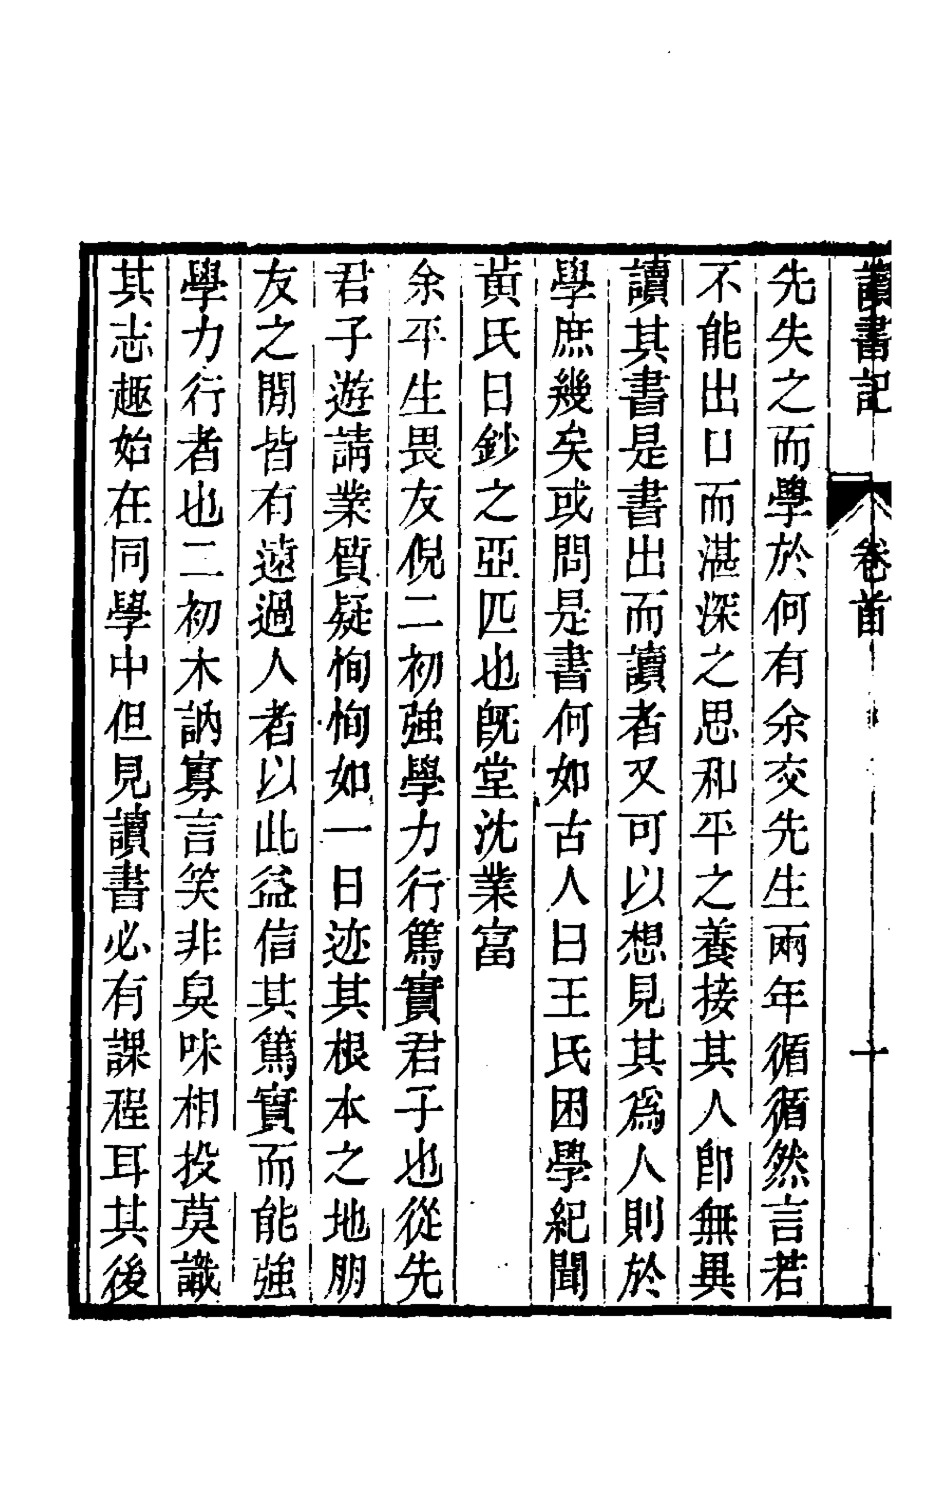 讀書記 卷首 十
先失之而學於何有余交先生兩年循循然言若
不能出口而湛深之思和平之養接其人卽無異
讀其書是書出而讀者又可以想見其爲人則於
學庶幾矣或問是書何如古人曰王氏困學紀聞
黃氏日鈔之亞匹也旣堂沈業富
余平生畏友倪二初強學力行篤實君子也從先
君子遊請業質疑恂恂如一日迹其根本之地朋
友之閒皆有遠過人者以此益信其篤實而能強
學力行者也二初木訥寡言笑非臭味相投莫識
其志趣始在同學中但見讀書必有課程耳其後